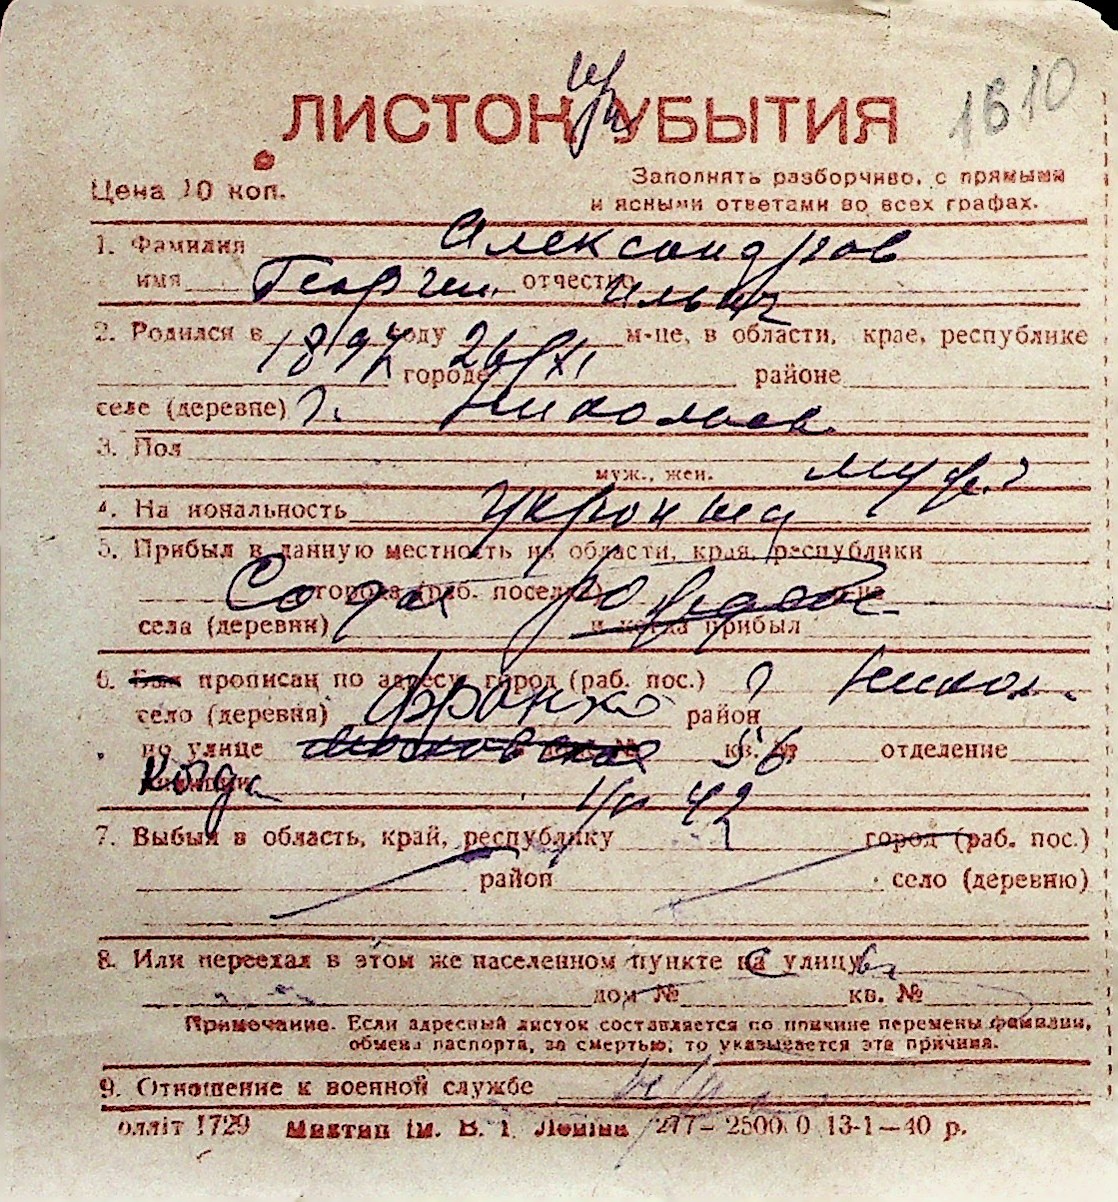 ЛИСТОК УБЫТИЯ 1610
Заполнять разборчиво, с прямыми
Цена 10 коп. и ясными ответами во всех графах.
1. Фамилия Александров
имя Георгий отчество Ильич
2. Родился в 1897 году 26/XI м-це, в области, крае, республике
городе районе
селе (деревне) г. Николаев
3. Пол
муж., жен. муж.
4. Национальность украинец
5. Прибыл в данную местность из области, края, республики
города (раб. поселка)
села (деревни) и когда прибыл
6. Был прописан по адресу: город (раб. пос.) г Никол.
село (деревня) Франко район
по улице Московская кв. № 56 отделение
Когда
42
7. Выбыл в область, край, республику город (раб. пос.)
район село (деревню)
8. Или переехал в этом же населенном пункте на улицу
дом № кв. №
Примечание. Если адресный листок составляется по причине перемены фамилии,
обмена паспорта, за смертью, то указывается эта причина.
9. Отношение к военной службе
олліт 1729 Миктип ім. В. І. Леніна 277—2500.0 13-1—40 р.